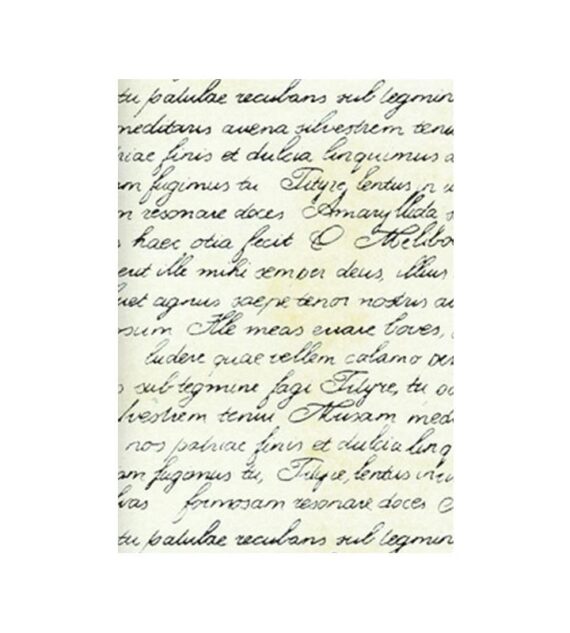 tu patulae recubans sub tegmin
meditaris avena silvestrem tenu
riae finis et dulcia linquimus a
m fugimus tu Tityre, lentus in u
n resonare doces Amaryllida s
haec otia fecit O Meliboe
ille mihi semper deus, illius
et agnus saepe tenor nostris au
sum Ille meas errare boves,
ludere quae vellem calamo per
sub tegmine fagi Tityre, tu
lvestrem tenui Musam med
nos patriae finis et dulcia linq
am fugamus tu, Tityre, lentus in
lvas formosam resonare doces
tu patulae recubans sub tegmin